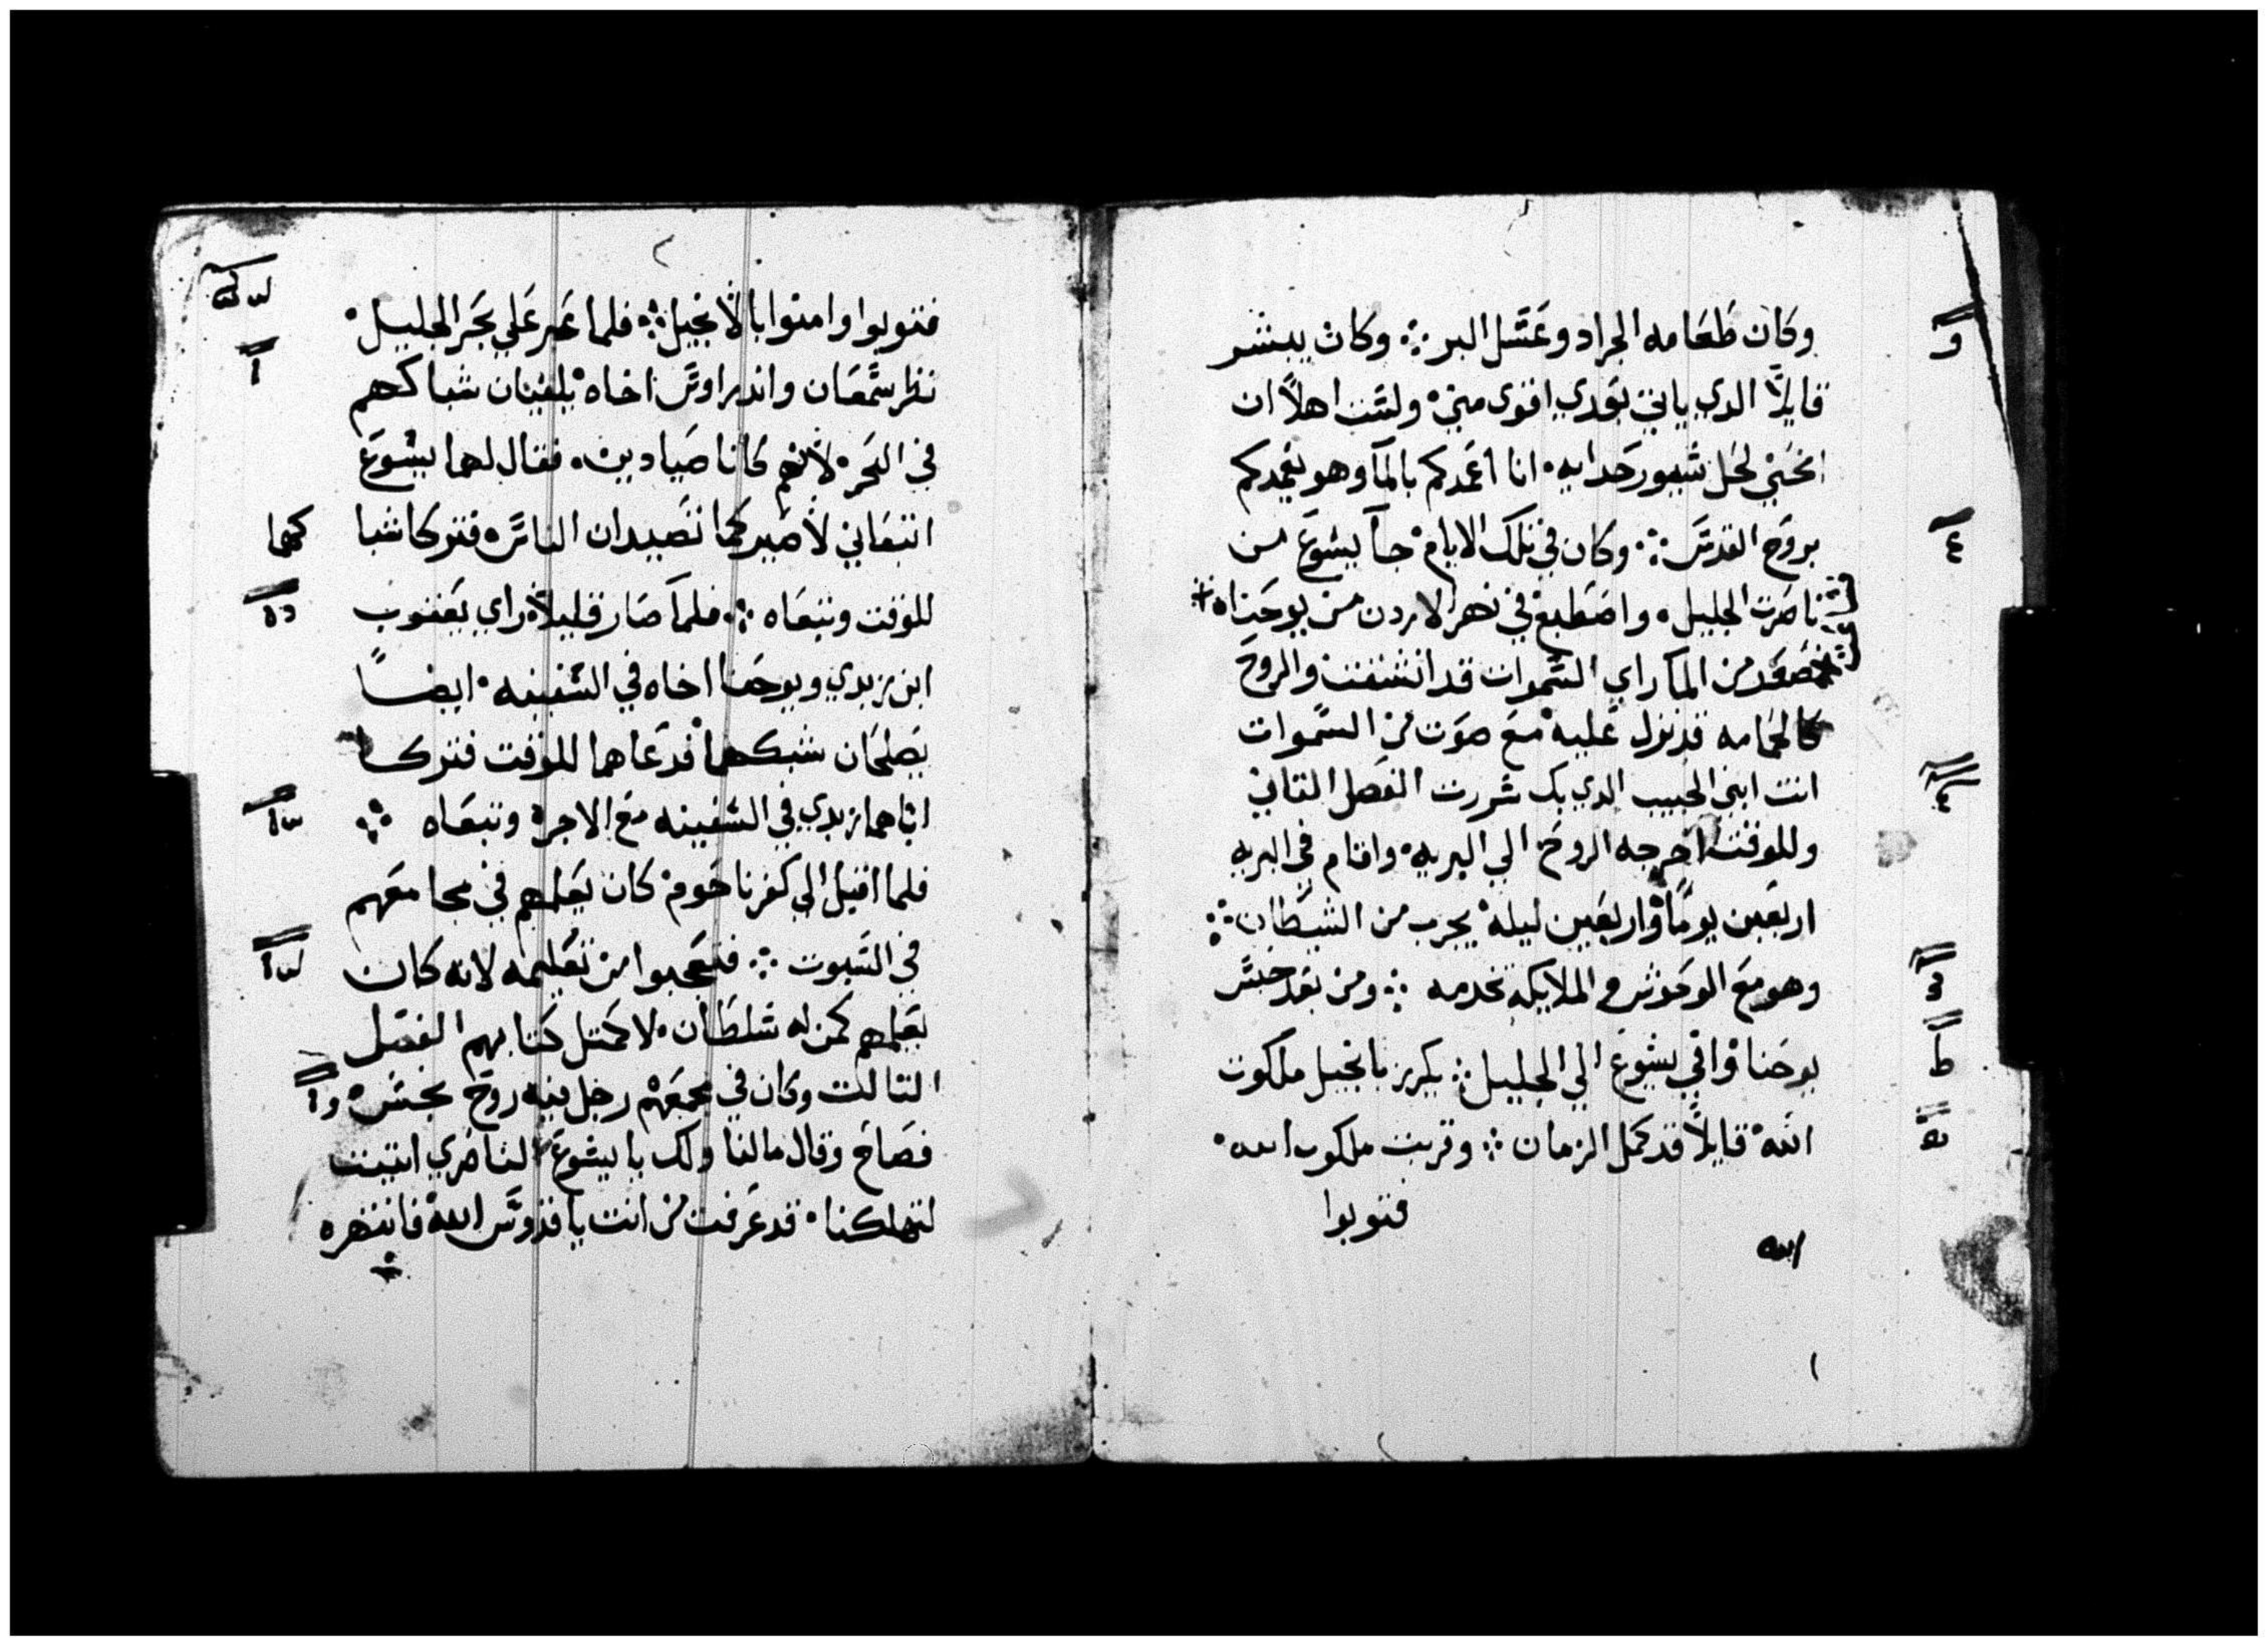 وكان طعامه الجراد وعسل البر ܀ وكان يبشر
قايلاً الدي ياتي بعدي اقوى مني ولست اهلاً ان
انحني لحل سيور حدايه انا اعمدكم بالمآ وهو يعمدكم
بروح القدس ܀ وكان في تلك الايام جآ يسوع من
ناصرت الجليل واصطبغ في نهر الاردن من يوحنا
صعد من المآ راي السموات قد انشقت والروح
كالحمامه قد نزل عليه مع صوت من السموات
انت ابني الحبيب الدي بك سررت الفصل التاني
وللوقت اخرجه الروح الي البريه واقام في البريه
اربعين يوماً واربعين ليله يجرب من الشيطان ܀
وهو مع الوحوش والملايكه تخدمه ܀ ومن بعد حبس
يوحنا وافي يسوع الي الجليل ܀ يكرز بانجيل ملكوت
الله قايلاً قد كمل الزمان ܀ وقربت ملكوت الله
فتوبوا
الله
فتوبوا وامنوا بالانجيل ܀ فلما عبر علي بحر الجليل
نظر سمعان واندراوس اخاه يلقيان شباكهم
في البحر لانهم كانا صيادين فقال لهما يسوع
اتبعاني لاصيركما تصيدان الناس فتركا شبا
كهما
للوقت وتبعاه ܀ فلما صار قليلاً راي يعقوب
ابن زبدي ويوحنا اخاه في السفينه ايضاً
يصلحان شبكهما فدعاهما للوقت فتركا
اباهما زبدي في السفينه مع الاجرا وتبعاه ܀
فلما اقبل الي كفرناحوم كان يعلمهم في مجامعهم
في السبوت ܀ فتعجبوا من تعليمه لانه كان
يعلمهم كمن له سلطان لا كمتل كتابهم الفصل
التالت وكان في مجمعهم رجل فيه روح نجس
فصاح وقال مالنا ولك يا يسوع الناصري اتيت
لتهلكنا قد عرفت من انت يا قدوس الله فانتهره